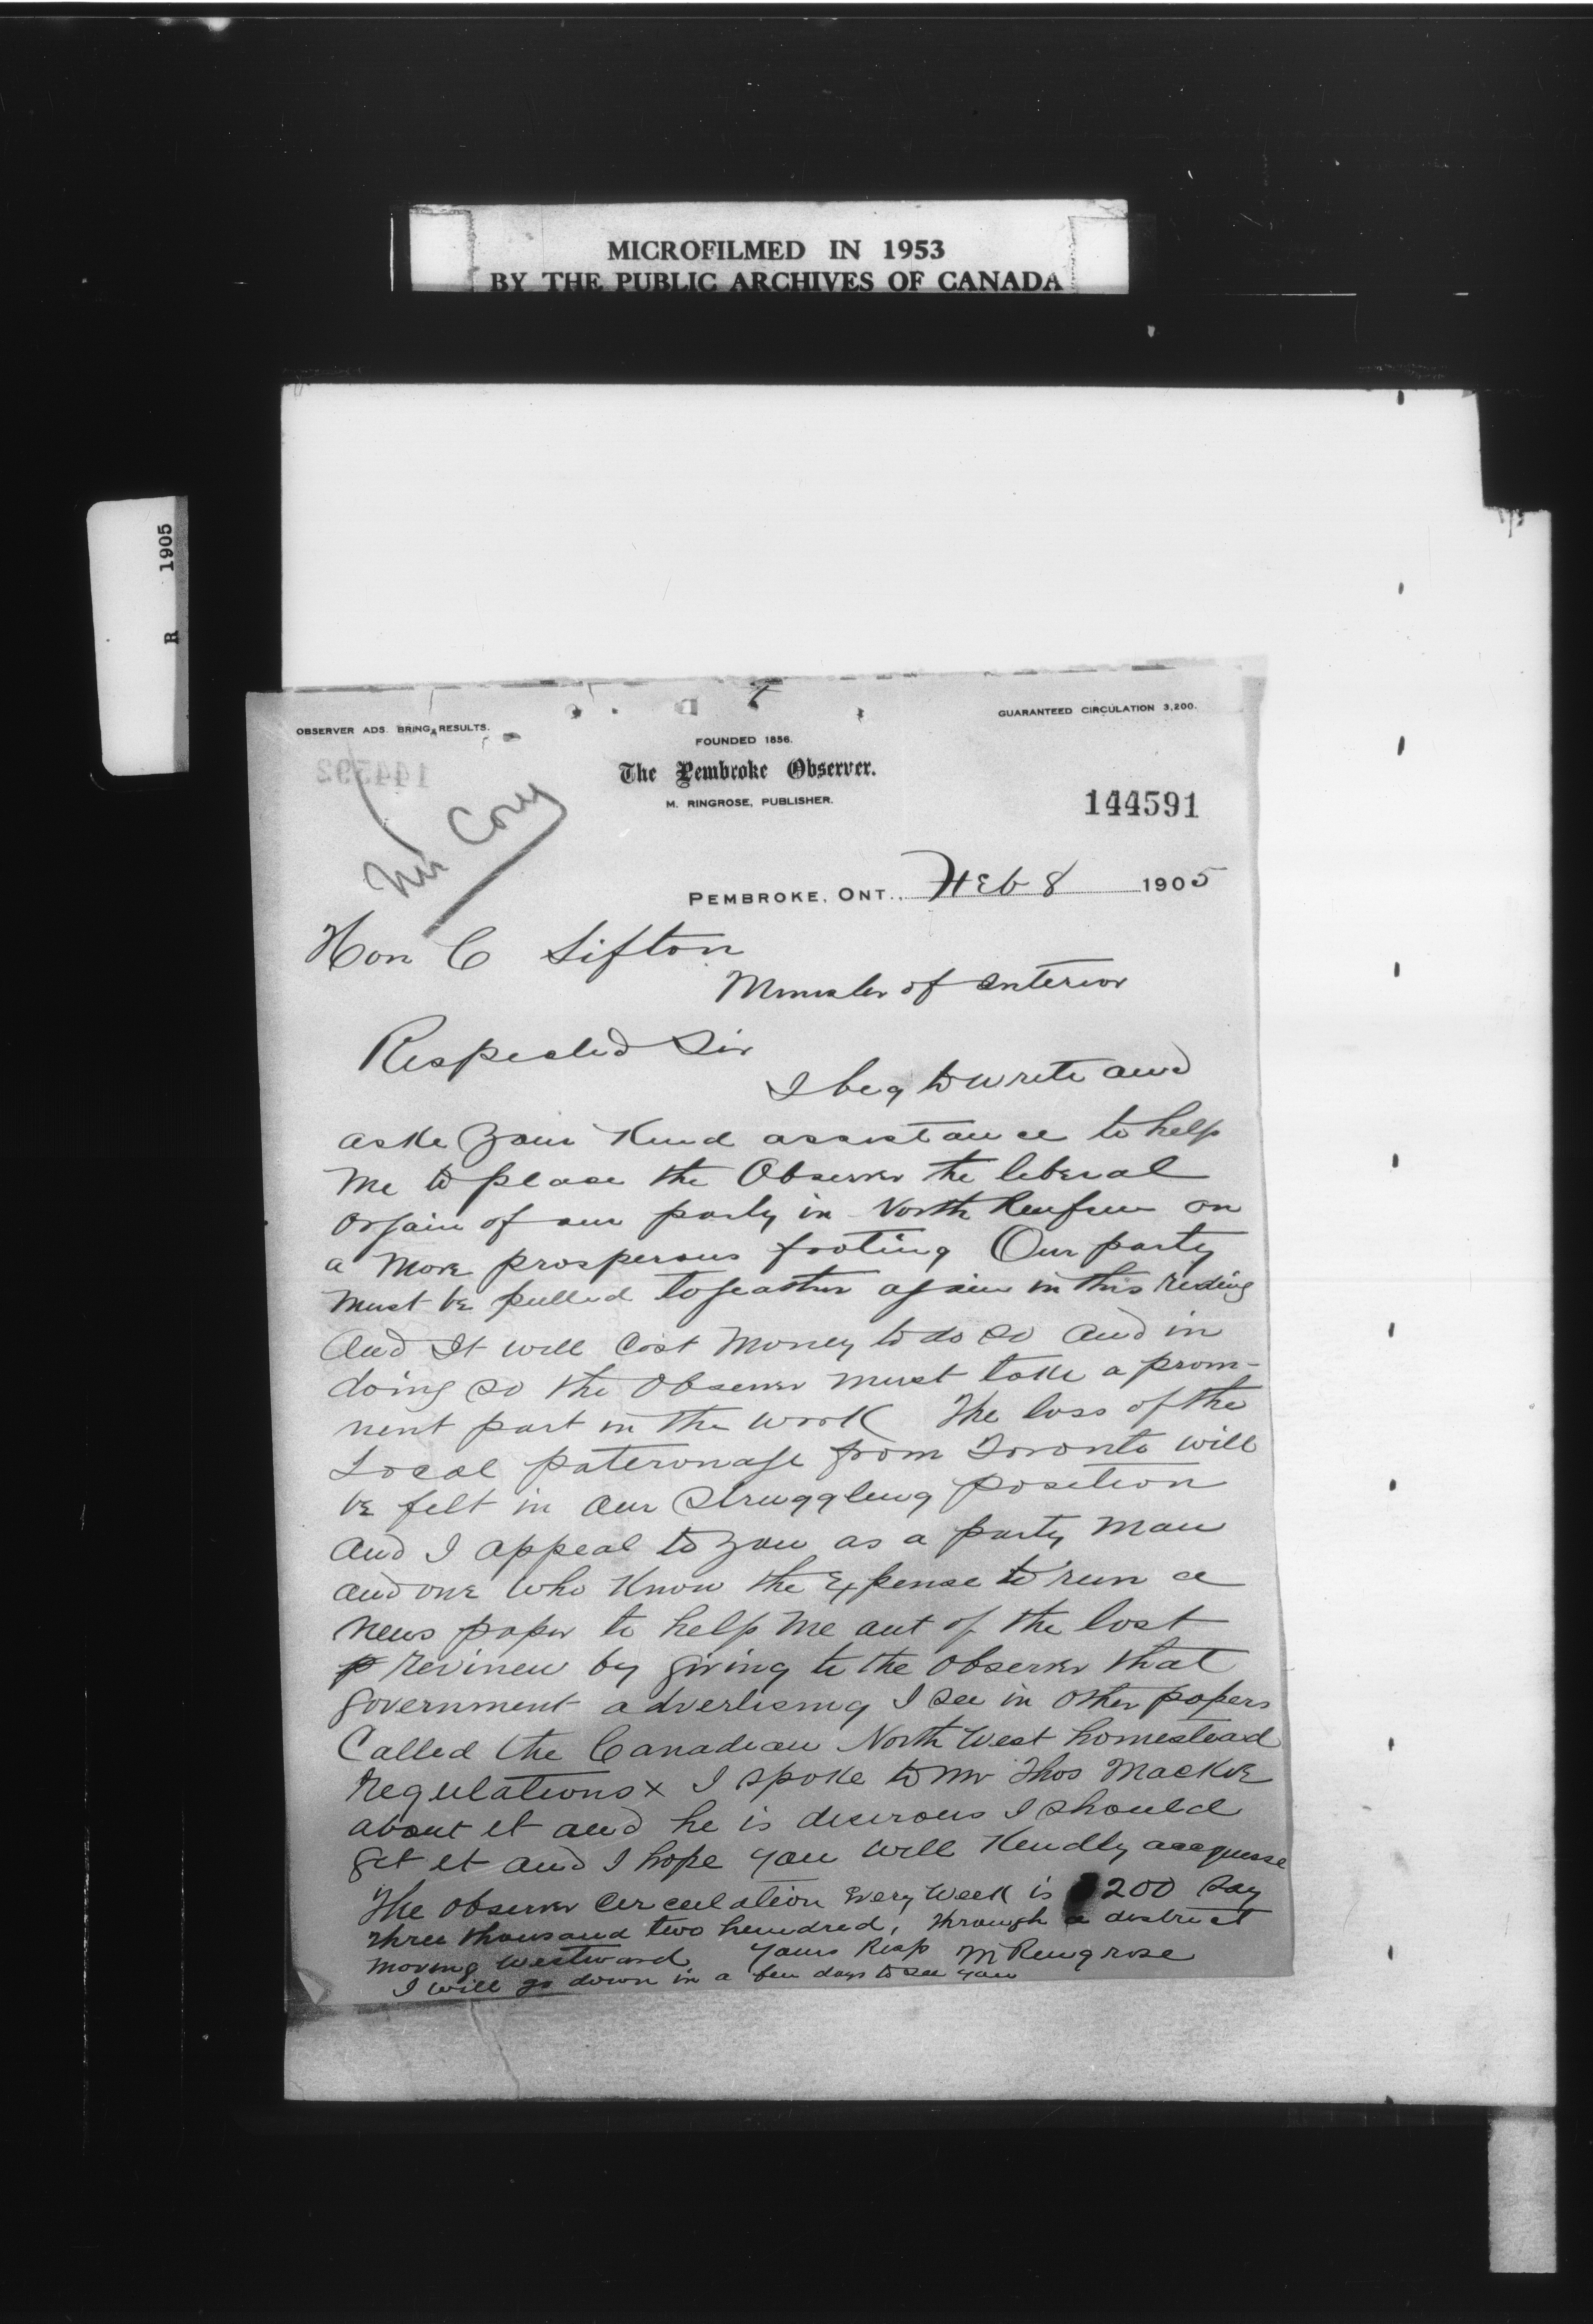 MICROFILMED IN 1953
BY THE PUBLIC ARCHIVES OF CANADA
R 1905
OBSERVER ADS. BRING RESULTS.
GUARANTEED CIRCULATION 3,200.
FOUNDED 1856.
The Pembroke Observer.
M. RINGROSE, PUBLISHER.
144592
144591
Mr Cory
PEMBROKE, ONT., Feb 8 1905
Hon C Sifton
Minister of Interior
Respected Sir
I beg to write and
aske your kind assistance to help
me to place the Observer the liberal
orgain of our party in North Renfrew on
a more prosperous footing Our party
must be pulled togeather again in this riding
And It will cost money to do so and in
doing so the Observer must take a prom-
nent part in the work The loss of the
Local pateronage from Toronto will
be felt in our struggling position
and I appeal to you as a party man
and one who know the Expense to run a
news paper to help me out of the lost
revineu by giving to the observer that
government advertising I see in other papers
Called the Canadian North West homestead
regulations x I spoke to Mr Thos Mackie
about it and he is desirous I should
get it and I hope you will kindly
The observer circulation Every week is 200 say
three thousand two hundred, through a district
moving westward Yours Resp M Ringrose
I will go down in a few days to see you